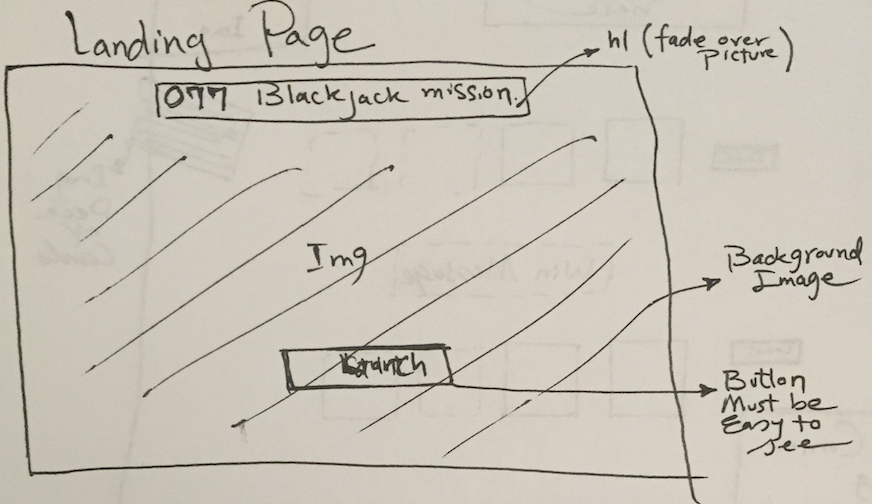 Landing Page
h1 (fade over
picture)
077 Blackjack mission.
Img
Background
Image
Button
Must be
Easy to
see